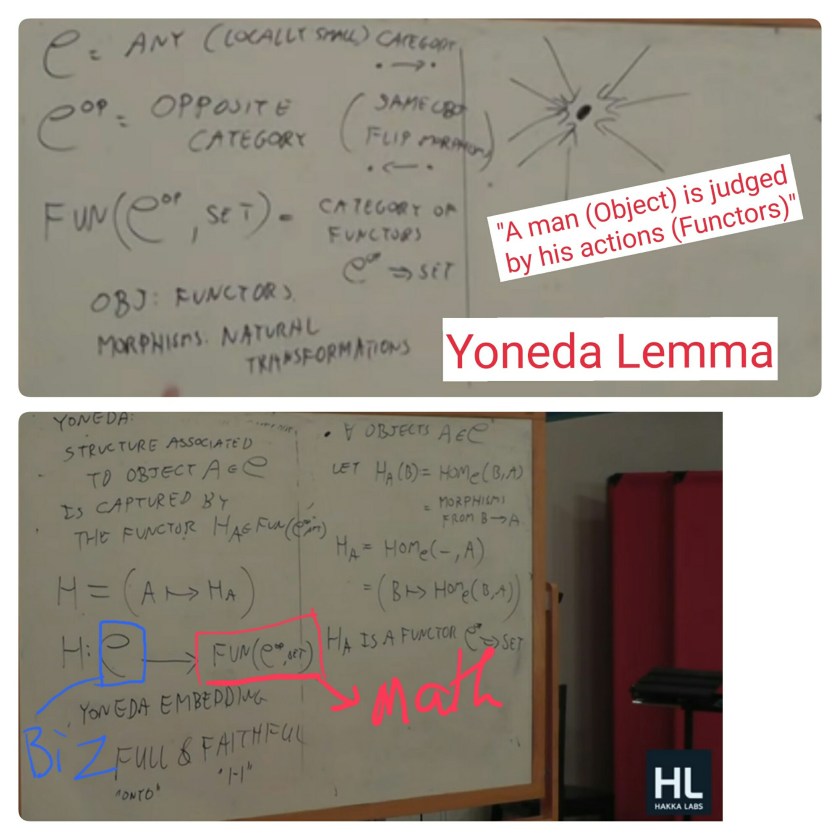 C = ANY (LOCALLY SMALL) CATEGORY
• → •
C^OP = OPPOSITE CATEGORY
(SAME OBJ
FLIP MORPHISM)
• ← •
FUN(C^OP, SET) = CATEGORY OF
FUNCTORS
C^OP ⇒ SET
OBJ: FUNCTORS
MORPHISMS: NATURAL
TRANSFORMATIONS
"A man (Object) is judged
by his actions (Functors)"
Yoneda Lemma
YONEDA:
STRUCTURE ASSOCIATED
TO OBJECT A ∈ C
IS CAPTURED BY
THE FUNCTOR H_A ∈ FUN(C^OP,
H = (A ↦ H_A)
H: C → FUN(C^OP, SET)
YONEDA EMBEDDING
Biz
FULL & FAITHFUL
"ONTO" "1-1"
• ∀ OBJECTS A ∈ C
LET H_A(B) = HOM_C(B,A)
= MORPHISMS
FROM B → A
H_A = HOM_C(-, A)
= (B ↦ HOM_C(B,A))
H_A IS A FUNCTOR C^OP ⇒ SET
Math
HL
HAKKA LABS